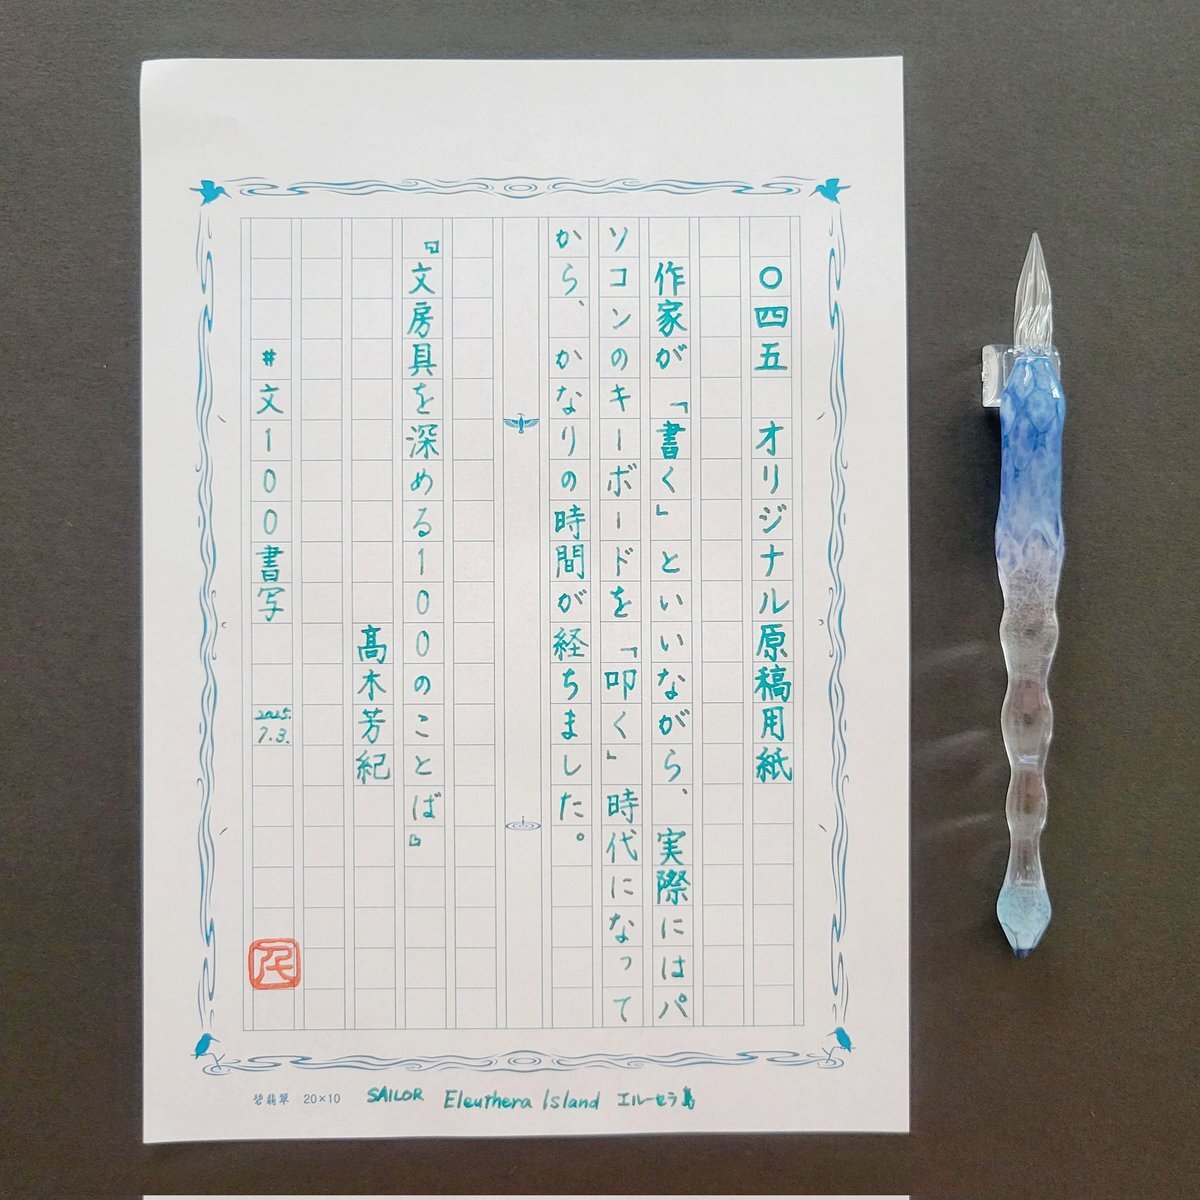 〇四五　オリジナル原稿用紙
作家が「書く」といいながら、実際にはパ
ソコンのキーボードを「叩く」時代になって
から、かなりの時間が経ちました。
『文房具を深める100のことば』
髙木芳紀
#文100書写　2025.7.3.
碧翡翠　20×10　SAILOR　Eleuthera Island　エルーセラ島